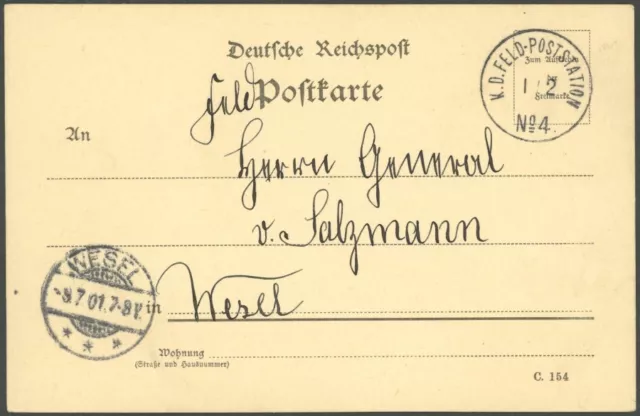 Deutsche Reichspost
Feld Postkarte
K. D. FELD-POSTSTATION
1/2
No 4.
Zum Aufkleben
der
Freimarke
An
Herrn General
v. Salzmann
WESEL
-8.7.01.7-8V.
* * *
in Wesel
Wohnung
(Straße und Hausnummer)
C. 154